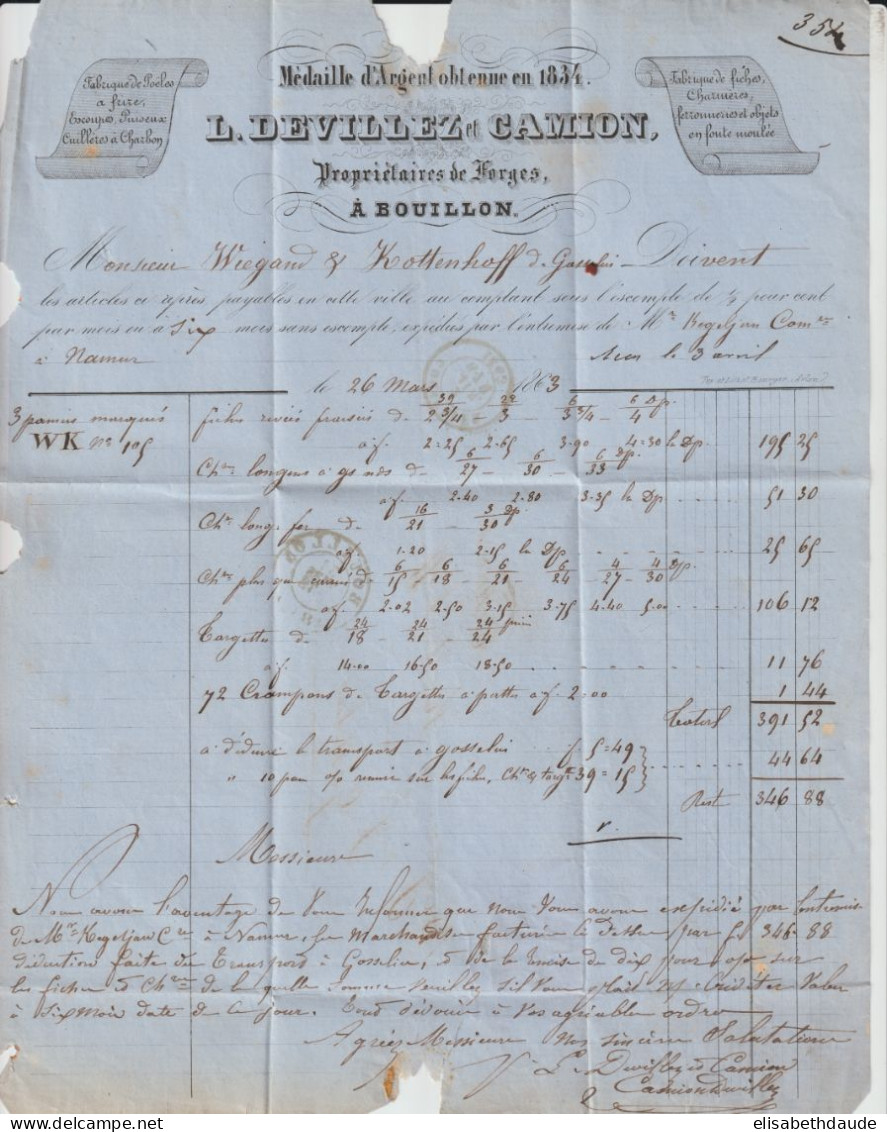 354
Médaille d'Argent obtenue en 1834.
Fabrique de Poeles
a frire,
Escoupes, Puiseux
Cuillères à Charbon
Fabrique de fiches,
Charnières,
ferronneries et objets
en fonte moulée
L. DEVILLEZ et CAMION,
Propriétaires de Forges,
À BOUILLON.
Monsieur Wiegand & Kottenhoff de Gosselies Doivent
les articles ci après, payables en cette ville au comptant sous l'escompte de ½ pour cent
par mois ou à six mois sans escompte, expédiés par l'entremise de Mr Kegeljan Com
à Namur le 3 avril
le 26 Mars 1863
39 22 6 6 Dp
3 paniers marqués fiches de 2 3/4 - 3 3 3/4 - 4
WK No 105
à f 2=25 2-65 3-90 4=30 le Dp 195 25
6 6 6 Dp
Chres longues à gs nds de 27 - 30 - 33
à f 2-40 2-80 3-35 le Dp 51 30
16 3 Dp
Chres long. fer de 21 30
à f 1-20 2-15 le Dp 25 65
6 6 6 6 4 4 Dp
Chres plus que quarré de 15 - 18 - 21 - 24 27 - 30
à f 2-02 2-50 3-15 3-75 4-40 5-00 106 12
24 24 24
Targettes de 18 21 24
à f 14-00 16-50 18-50 11 76
72 Crampons de Targettes à pattes à f 2=00 1 44
Total 391 52
à déduire le transport à gosselies f 5=49
" 10 pour % remise sur les fiches, Chres & targttes 39=15 44 64
Rest 346 88
Messieurs
Nous avons l'avantage de Vous Informer que nous Vous avons expédié par lentremise
de Mr Kegeljan Cie à Namur, les Marchandises facturées Ci dessus par f 346-88
déduction faite du Transport à Gosselies, & de la Remise de dix pour % sur
les fiches & Chres de la quelle somme veuillez sil Vous plait Ns Créditer Valeur
à Six Mois date de ce jour. Tout dévoués à Vos agréables ordres
Agréez Messieurs nos sincères Salutations
L. Devillez & Camion
Camion Devillez
BOUILLON
elisabethdaude